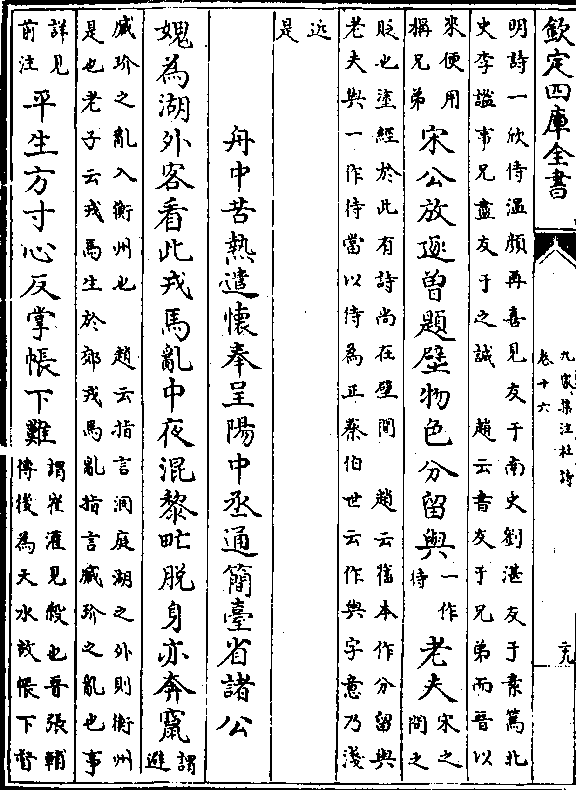 欽定四庫全書
九家集注杜詩
卷十六
明詩一欣侍溫顏再喜見友于南史劉湛友于素篤北
史李謐事兄盡友于之誠　趙云書友于兄弟而晉以
來便用
稱兄弟
宋公放逐曾題壁物色分留與
一作
待
老夫
宋之
問之
貶也塗經於此有詩尚在壁間　趙云舊本作分留與
老夫與一作待當以待為正蔡伯世云作與字意乃淺
近
是
舟中苦熱遣懷奉呈陽中丞通簡臺省諸公
愧為湖外客看此戎馬亂中夜混黎甿脫身亦奔竄
謂
避
臧玠之亂入衡州也　趙云指言洞庭湖之外則衡州
是也老子云戎馬生於郊戎馬亂指言臧玠之亂也事
詳見
前注
平生方寸心反掌帳下難
謂崔灌見殺也晉張輔
傳後為天水故帳下督